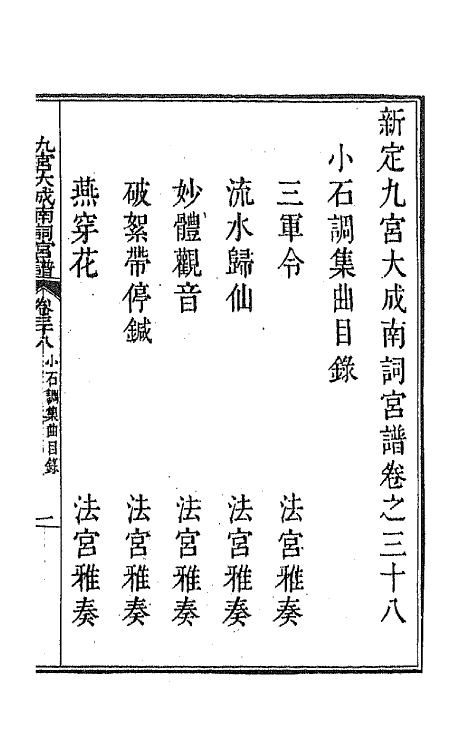 新定九宮大成南詞宮譜卷之三十八
小石調集曲目錄
三軍令　法宮雅奏
流水歸仙　法宮雅奏
妙體觀音　法宮雅奏
破絮帶停鍼　法宮雅奏
燕穿花　法宮雅奏
九宮大成南詞宮譜　卷三十八　小石調集曲目錄　一